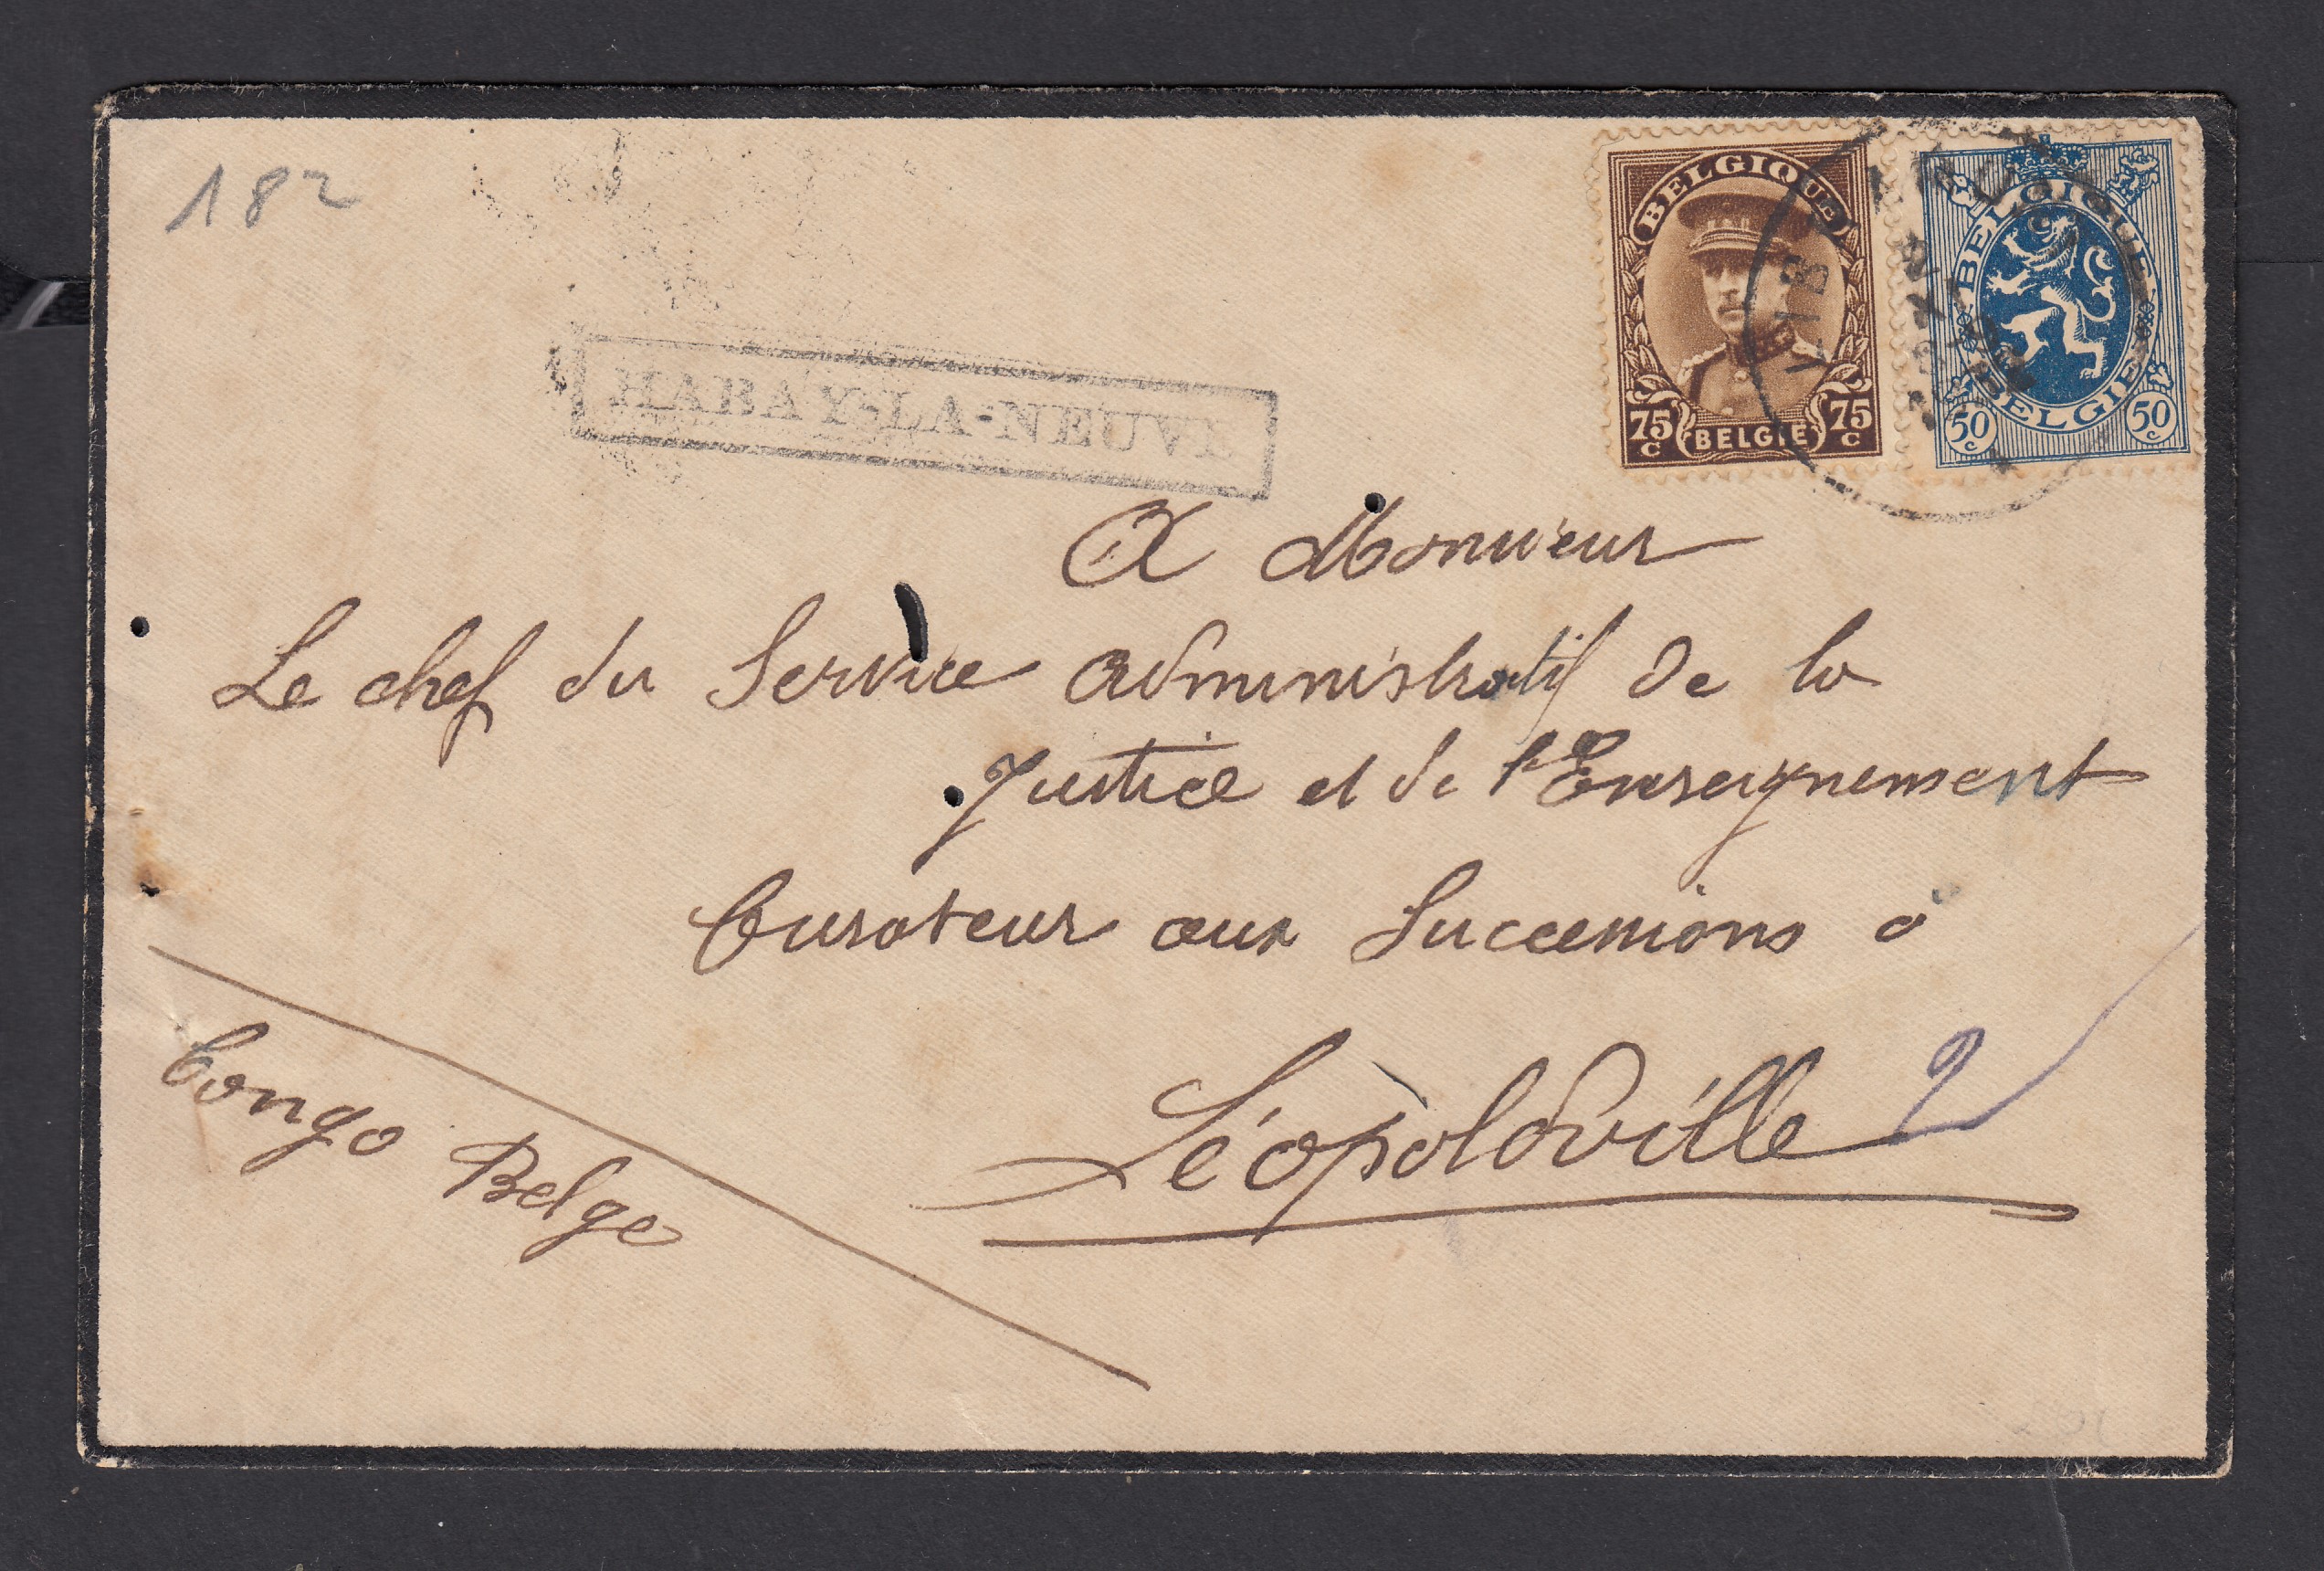 182
BELGIQUE
75 C
75 C
BELGIE
BELGIQUE
50 c
50 c
BELGIE
HABAY-LA-NEUVE
A Monsieur
Le chef du Service Administratif de la
Justice et de l'Enseignement
Curateur aux Successions à
Léopoldville 2
Congo Belge